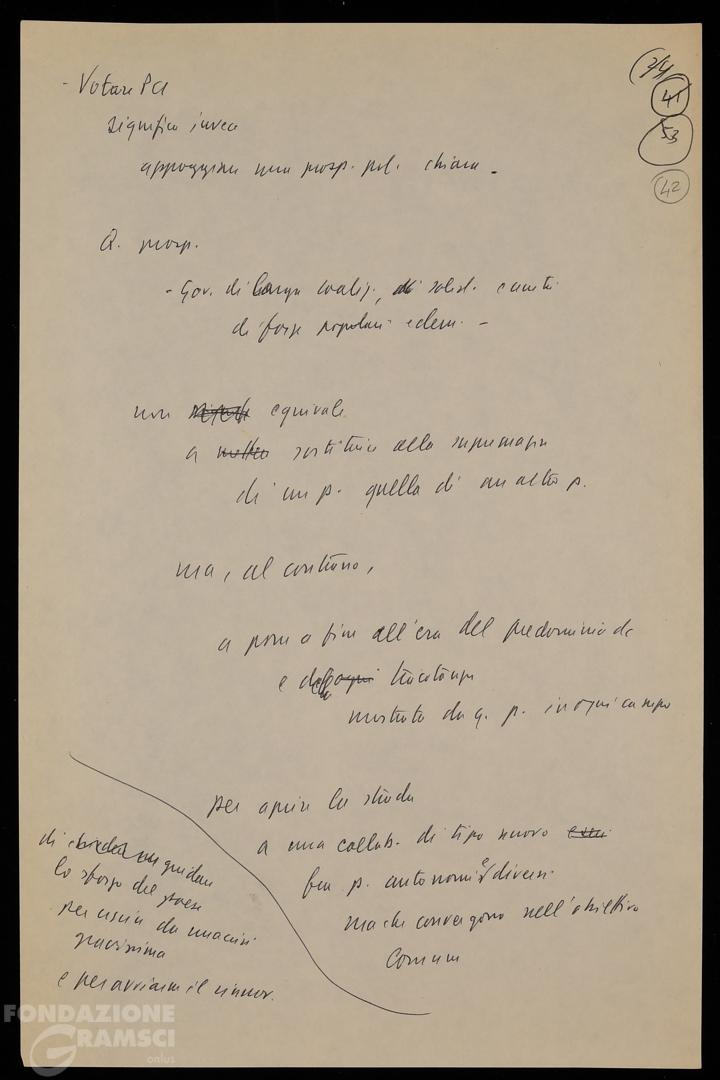 - Votare PCI
significa invece
appoggiare una prosp. pol. chiara -
Q. prosp.
- Gov. di larga coaliz., di solid. e unità
di forze popolari e dem. -
non equivale
a sostituire alla supremazia
di un p. quella di un altro p.
ma, al contrario,
a porre a fine all'era del predominio dc
e della tracotanza
mostrata da q. p. in ogni campo
per aprire la strada
a una collab. di tipo nuovo
fra p. autonomi e diversi
ma che convergono nell'obiettivo
comune
di guidare
lo sforzo del paese
per uscire da una crisi
gravissima
e per avviarne il rinnov.
34
41
53
42
FONDAZIONE
GRAMSCI
onlus